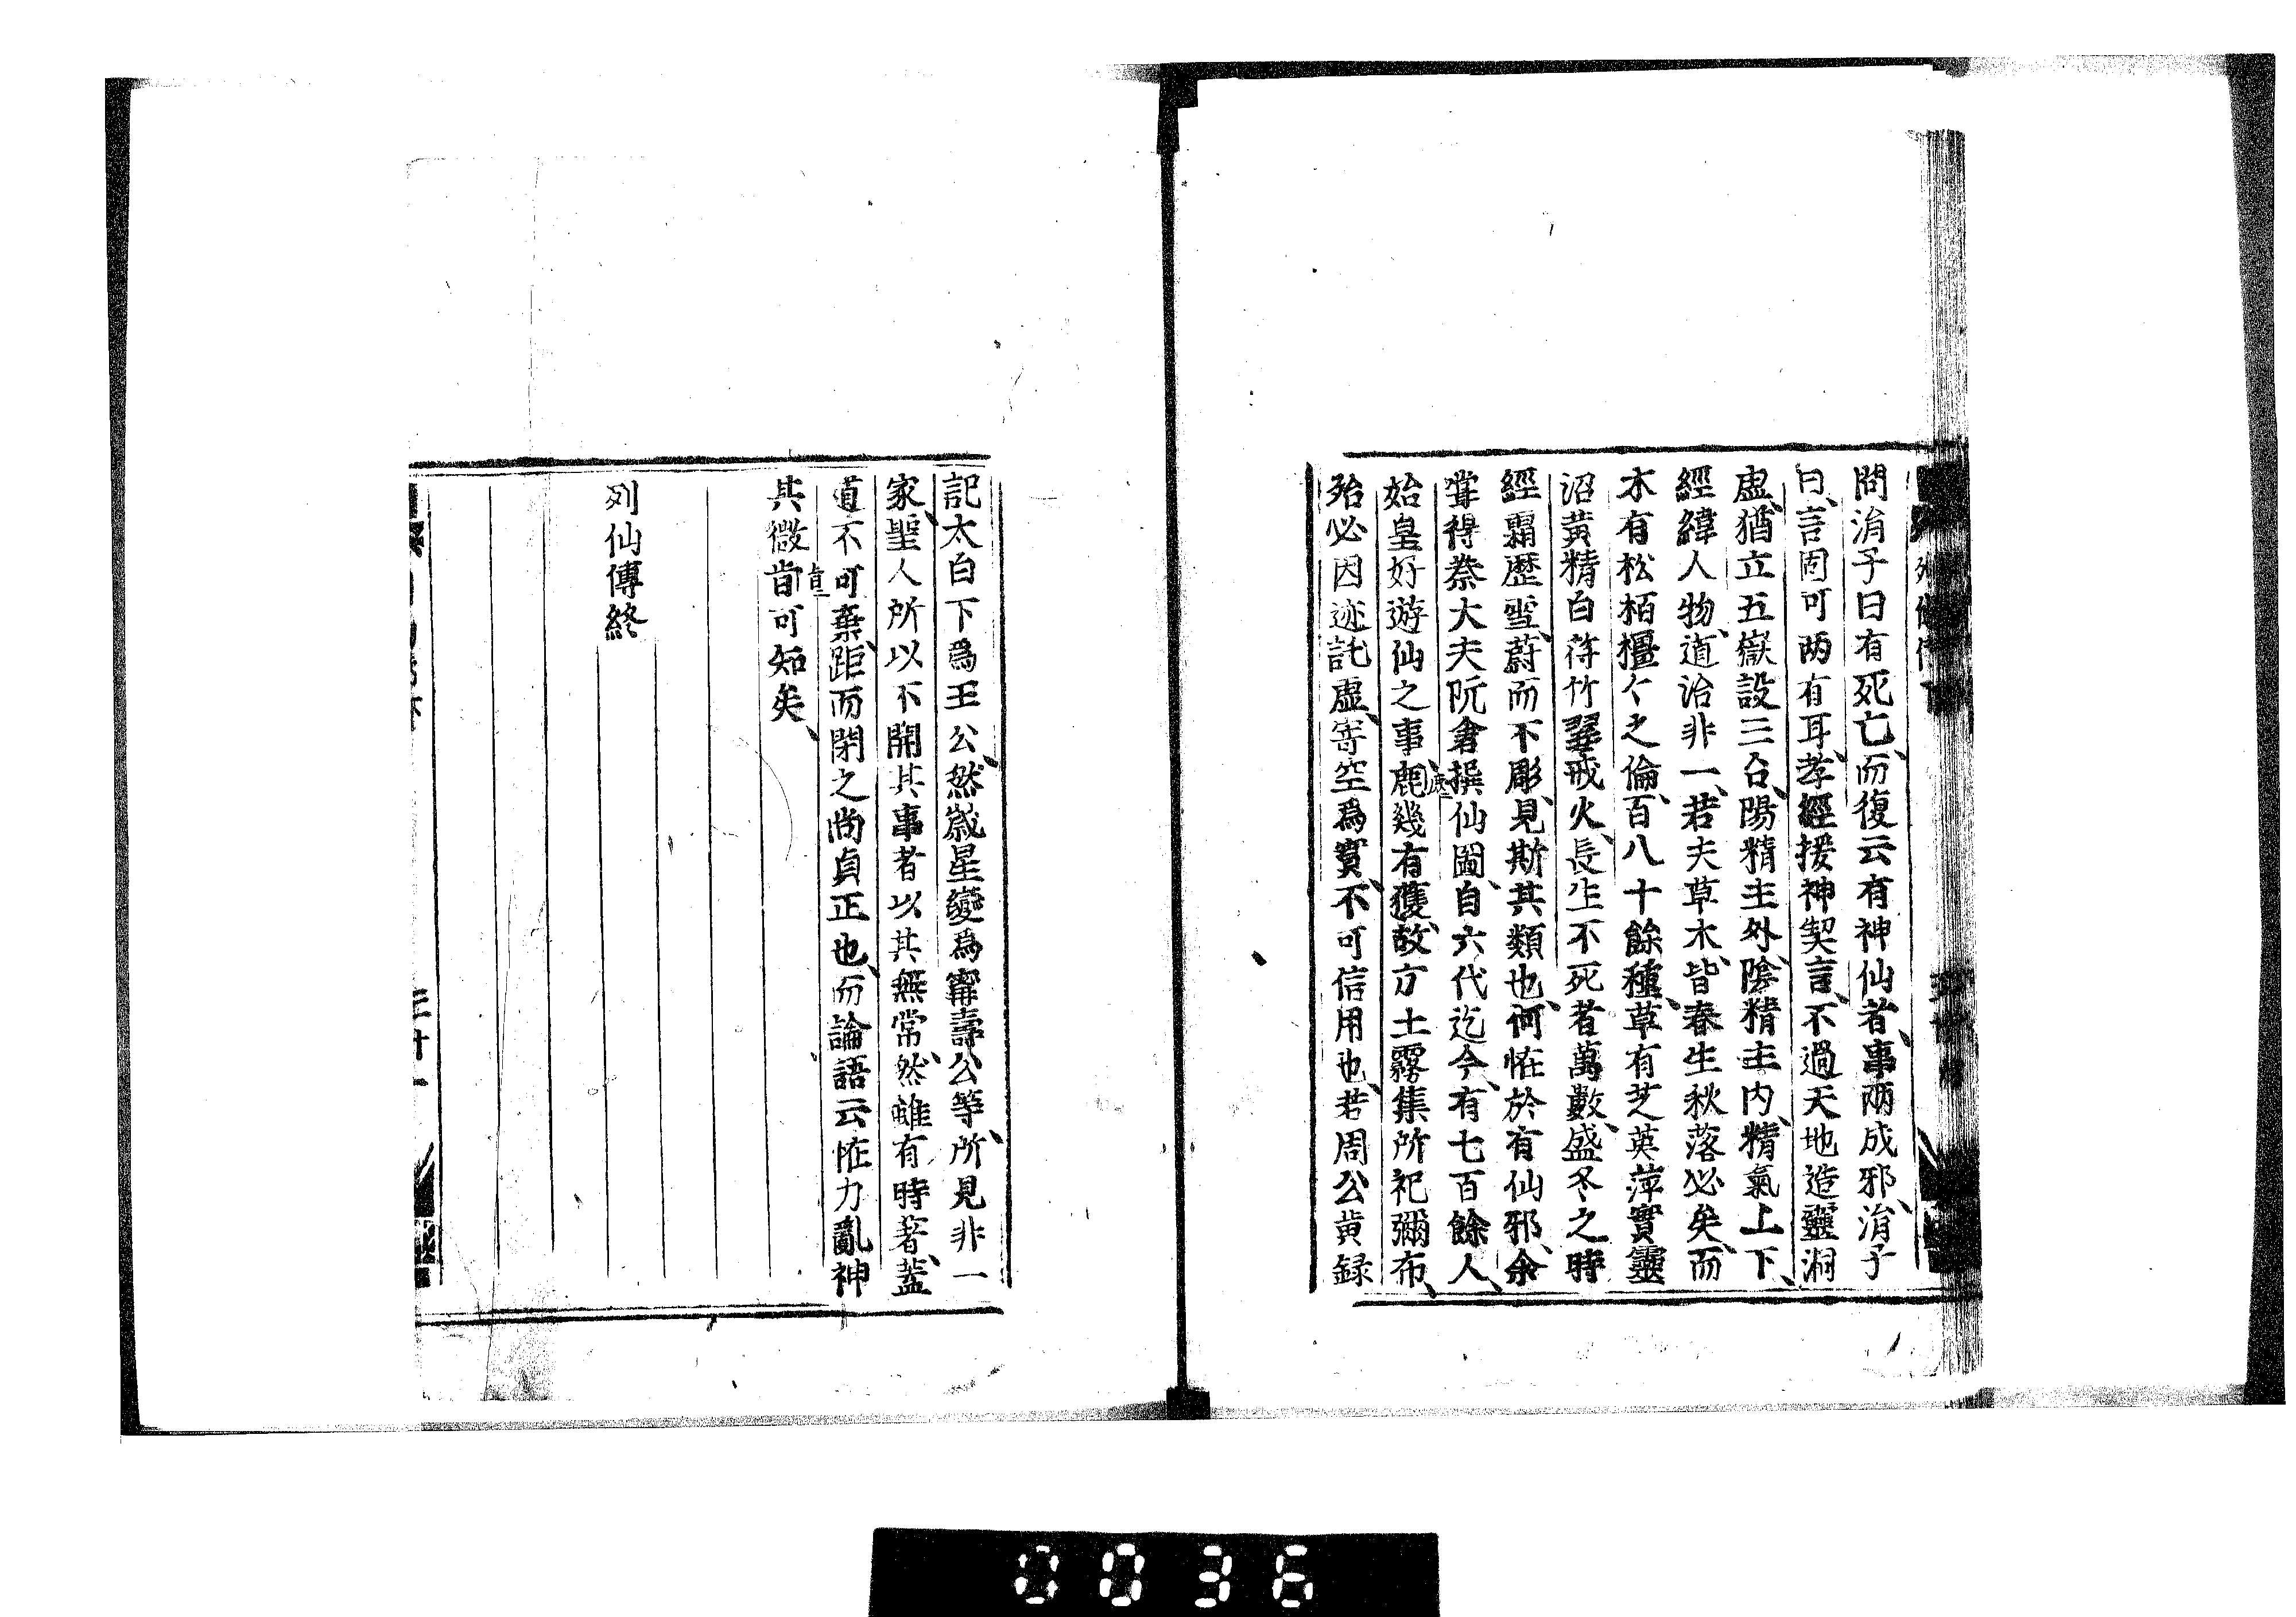 問涓子曰有死亡而復云有神仙者事兩成邪涓子
曰言固可两有耳孝經援神契言不過天地造靈洞
虛猶立五嶽設三台陽精主外陰精主内精氣上下
經緯人物道治非一若夫草木皆春生秋落必矣而
木有松栢橿𠆢之倫百八十餘種草有芝英萍實靈
沼黄精白苻竹翣戒火長生不死者萬數盛冬之時
經霜歷雪蔚而不彫見斯其類也何恠於有仙邪余
甞得秦大夫阮倉撰仙圖自六代迄今有七百餘人
始皇好遊仙之事庶幾有獲故方士霧集所祀彌布
殆必因迹託虛寄空爲實不可信用也若周公黄録
記太白下爲王公然歲星變爲甯壽公等所見非一
家聖人所以不開其事者以其無常然雖有時著蓋
道不可棄距而閉之尚貞正也而論語云恠力亂神
其微旨可知矣
列仙傳終
三十一
0036